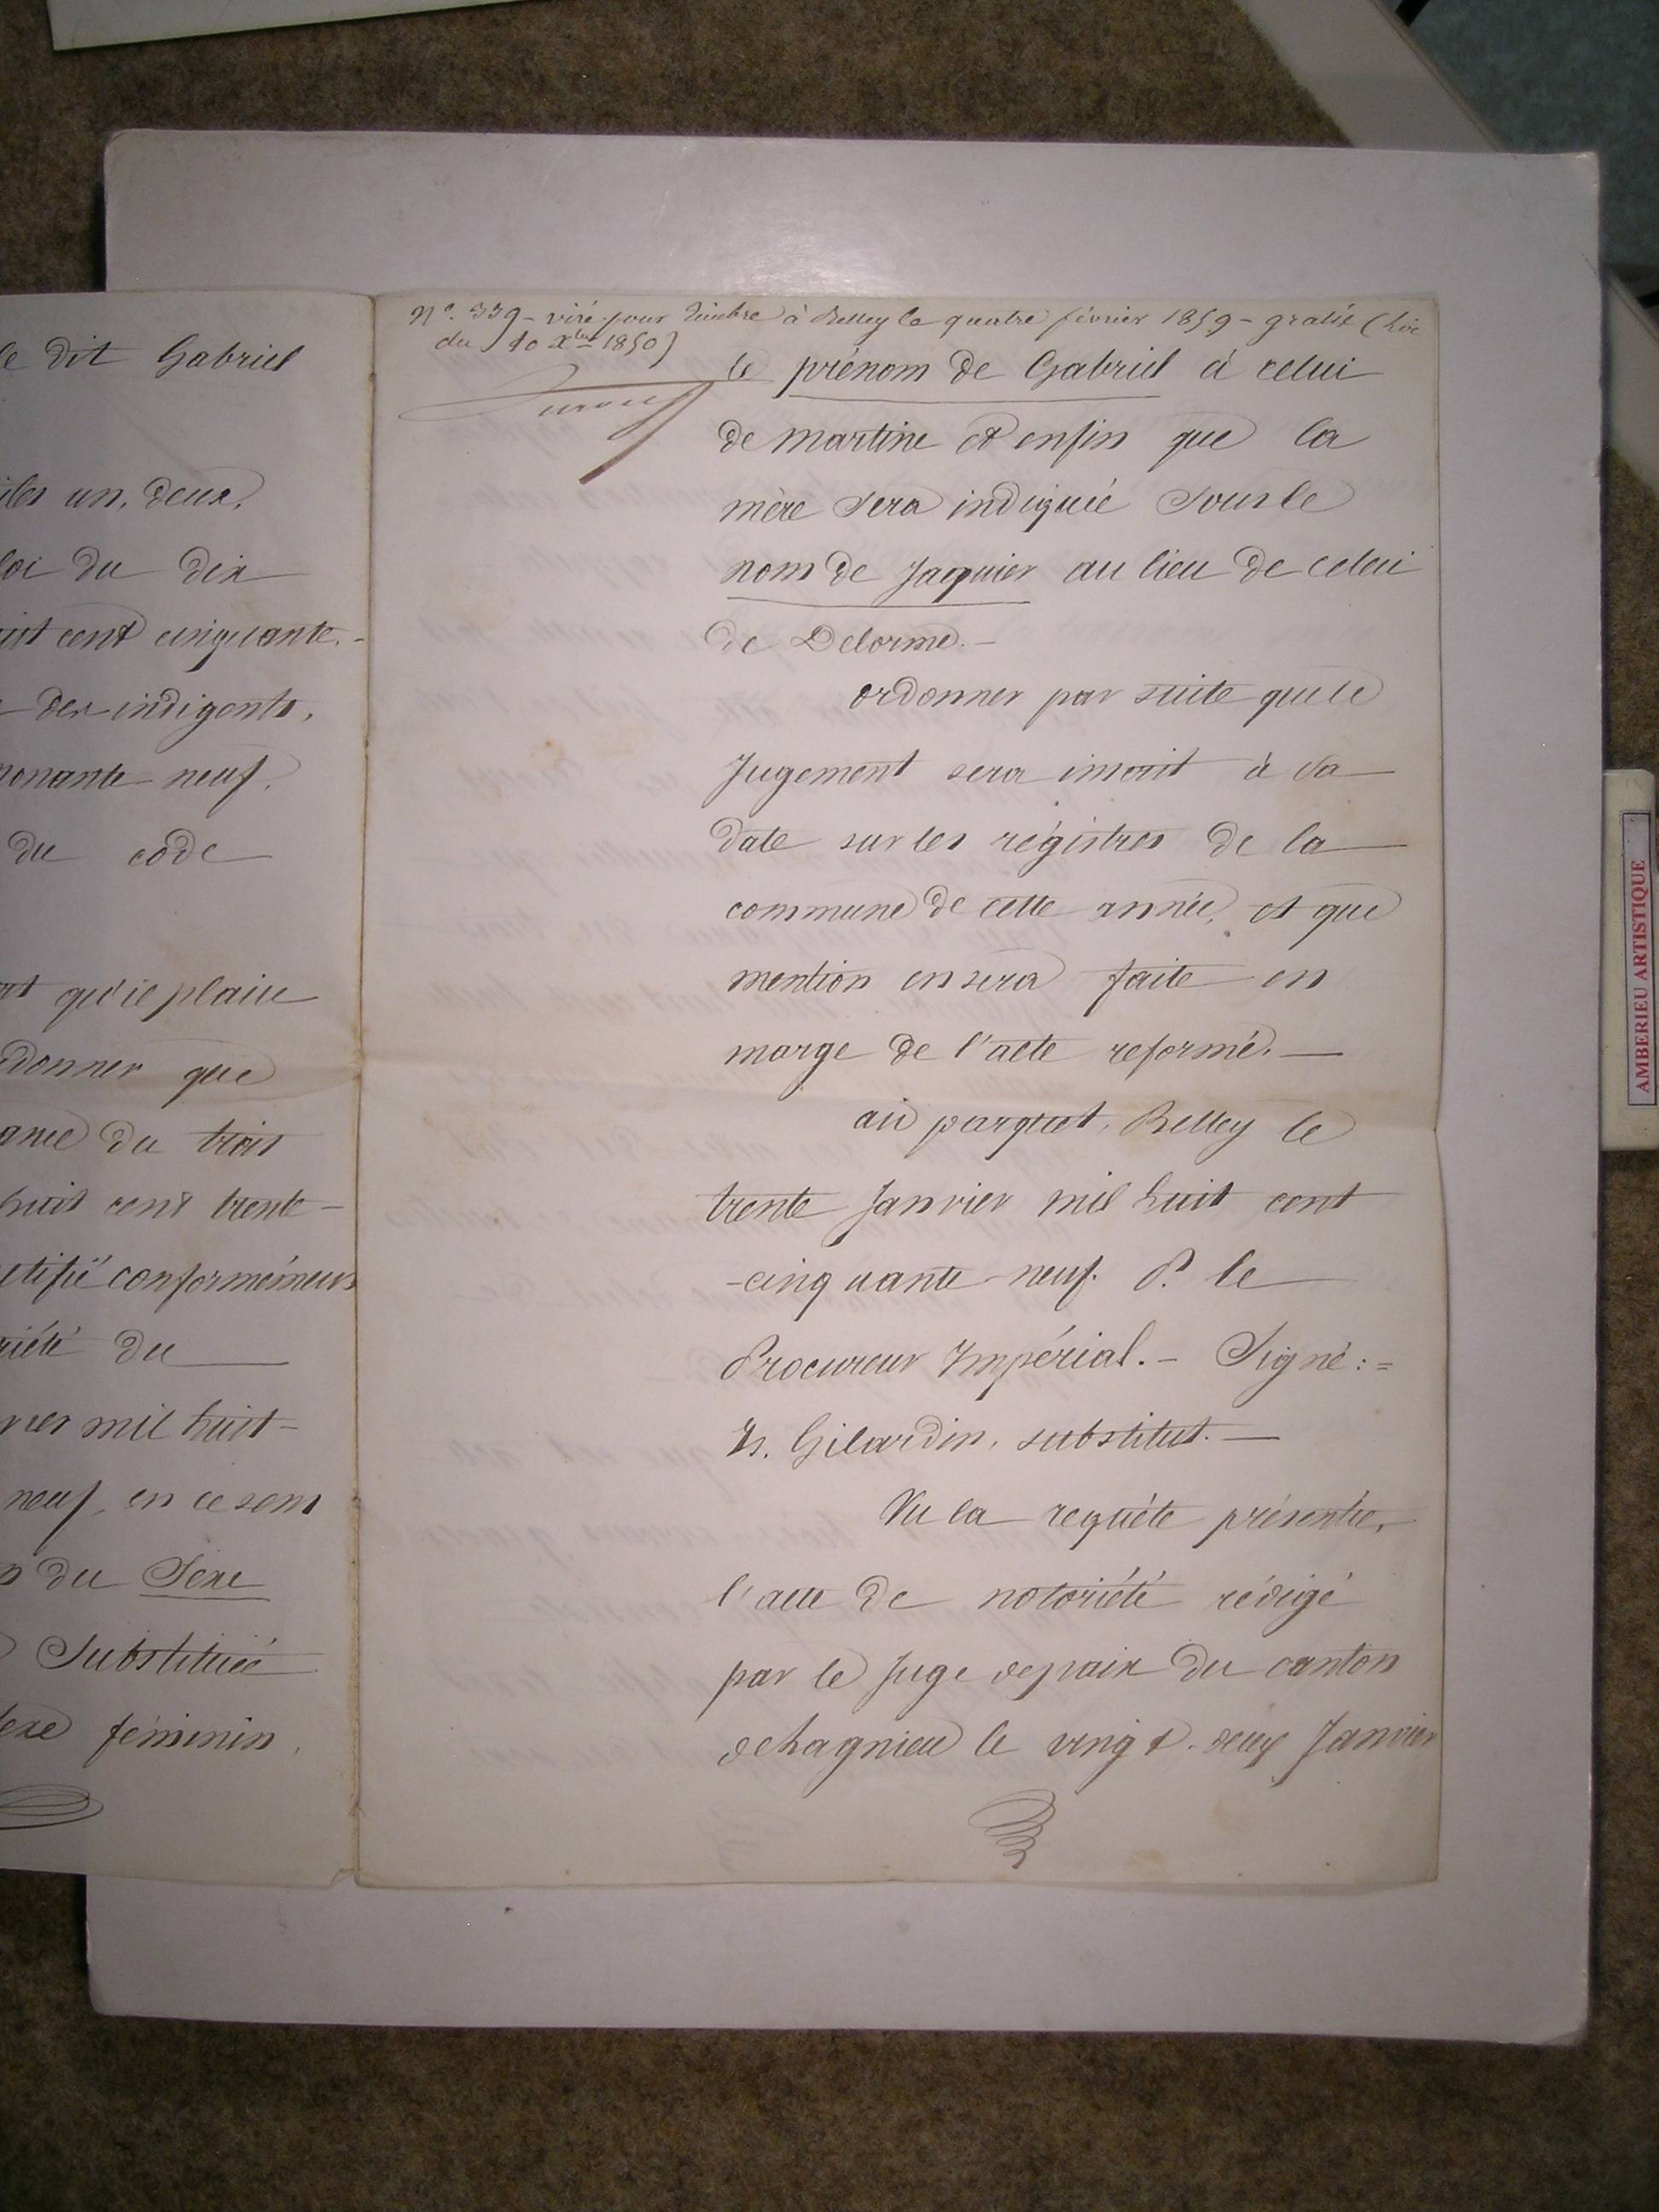 le dit Gabriel
un, deux,
loi du dix
cent cinquante.-
des indigents,
nonante-neuf.
du code
qu'il plaise
donner que
du trois
huit cent trente-
conformément
du
mil huit-
neuf, en ce sens
du Sexe
Substituée
féminin,
N°. 339 - visé pour timbre à Belley le quatre février 1859 - gratis (Loi
du 10 Xbre 1850)
le prénom de Gabriel à celui
de martine et enfin que la
mère sera indiquée sous le
nom de Jaquier au lieu de celui
de Delorme.-
ordonner par suite que le
Jugement sera inscrit à sa
date sur les régistres de la
commune de cette année, et que
mention en sera faite en
marge de l'acte reformé.-
au parquet, Belley le
trente Janvier mil huit cent
-cinquante-neuf. P. le
Procureur Impérial.- Signé:=
Gilardin, substitut.-
Vu la requête présentée,
l'acte de notoriété rédigé
par le Juge de paix du canton
de Lagnieu le vingt-deux Janvier
AMBERIEU ARTISTIQUE